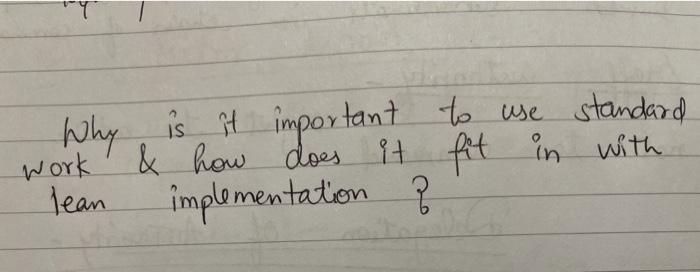 Why is it important to use standard
work & how does it fit in with
lean implementation ?